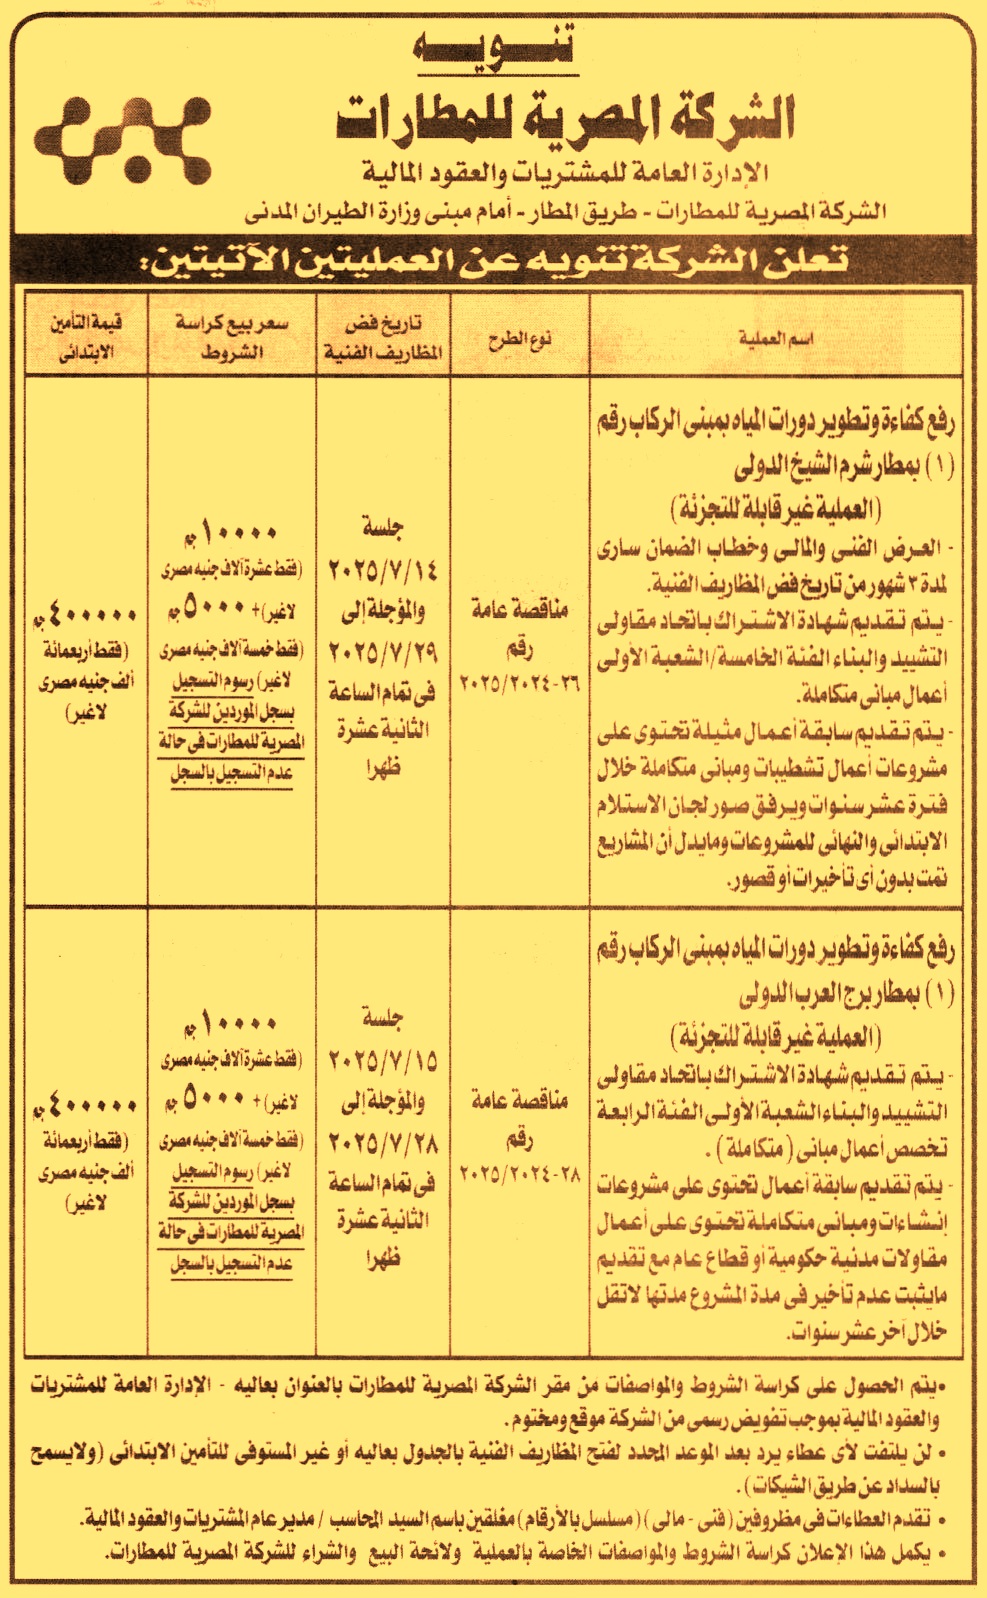 تنويه
الشركة المصرية للمطارات
الإدارة العامة للمشتريات والعقود المالية
الشركة المصرية للمطارات - طريق المطار - أمام مبنى وزارة الطيران المدنى
تعلن الشركة تنويه عن العمليتين الآتيتين:
اسم العملية
نوع الطرح
تاريخ فض
المظاريف الفنية
سعر بيع كراسة
الشروط
قيمة التأمين
الابتدائى
رفع كفاءة وتطوير دورات المياه بمبنى الركاب رقم
(١) بمطار شرم الشيخ الدولى
(العملية غير قابلة للتجزئة)
- العرض الفنى والمالى وخطاب الضمان سارى
لمدة ٣ شهور من تاريخ فض المظاريف الفنية.
- يتم تقديم شهادة الاشتراك باتحاد مقاولى
التشييد والبناء الفئة الخامسة/الشعبة الأولى
أعمال مبانى متكاملة.
- يتم تقديم سابقة أعمال مثيلة تحتوى على
مشروعات أعمال تشطيبات ومبانى متكاملة خلال
فترة عشر سنوات ويرفق صور لجان الاستلام
الابتدائى والنهائى للمشروعات ومايدل أن المشاريع
تمت بدون أى تأخيرات أو قصور.
مناقصة عامة
رقم
٢٦-٢٠٢٥/٢٠٢٤
جلسة
٢٠٢٥/٧/١٤
والمؤجلة إلى
٢٠٢٥/٧/٢٩
فى تمام الساعة
الثانية عشرة
ظهرا
١٠٠٠٠ جم
(فقط عشرة آلاف جنيه مصرى
لاغير) + ٥٠٠٠ جم
(فقط خمسة آلاف جنيه مصرى
لاغير) رسوم التسجيل
بسجل الموردين للشركة
المصرية للمطارات فى حالة
عدم التسجيل بالسجل
٤٠٠٠٠٠ جم
(فقط أربعمائة
ألف جنيه مصرى
لاغير)
رفع كفاءة وتطوير دورات المياه بمبنى الركاب رقم
(١) بمطار برج العرب الدولى
(العملية غير قابلة للتجزئة)
- يتم تقديم شهادة الاشتراك باتحاد مقاولى
التشييد والبناء الشعبة الأولى الفئة الرابعة
تخصص أعمال مبانى (متكاملة).
- يتم تقديم سابقة أعمال تحتوى على مشروعات
إنشاءات ومبانى متكاملة تحتوى على أعمال
مقاولات مدنية حكومية أو قطاع عام مع تقديم
مايثبت عدم تأخير فى مدة المشروع مدتها لاتقل
خلال آخر عشر سنوات.
مناقصة عامة
رقم
٢٨-٢٠٢٥/٢٠٢٤
جلسة
٢٠٢٥/٧/١٥
والمؤجلة إلى
٢٠٢٥/٧/٢٨
فى تمام الساعة
الثانية عشرة
ظهرا
١٠٠٠٠ جم
(فقط عشرة آلاف جنيه مصرى
لاغير) + ٥٠٠٠ جم
(فقط خمسة آلاف جنيه مصرى
لاغير) رسوم التسجيل
بسجل الموردين للشركة
المصرية للمطارات فى حالة
عدم التسجيل بالسجل
٤٠٠٠٠٠ جم
(فقط أربعمائة
ألف جنيه مصرى
لاغير)
•يتم الحصول على كراسة الشروط والمواصفات من مقر الشركة المصرية للمطارات بالعنوان بعاليه - الإدارة العامة للمشتريات
والعقود المالية بموجب تفويض رسمى من الشركة موقع ومختوم.
• لن يلتفت لأى عطاء يرد بعد الموعد المحدد لفتح المظاريف الفنية بالجدول بعاليه أو غير المستوفى للتأمين الابتدائى (ولايسمح
بالسداد عن طريق الشيكات).
• تقدم العطاءات فى مظروفين (فنى - مالى) (مسلسل بالأرقام) مغلقين باسم السيد المحاسب / مدير عام المشتريات والعقود المالية.
• يكمل هذا الإعلان كراسة الشروط والمواصفات الخاصة بالعملية ولائحة البيع والشراء للشركة المصرية للمطارات.